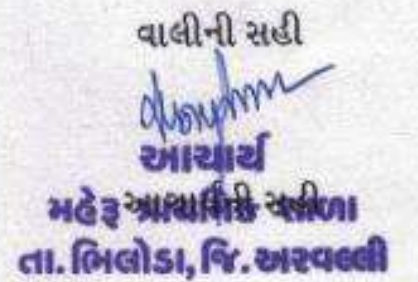 વાલીની સહી
આચાર્ય
મહેરૂ પ્રાથમિક શાળા
આચાર્યની સહી
તા. ભિલોડા, જિ. અરવલ્લી